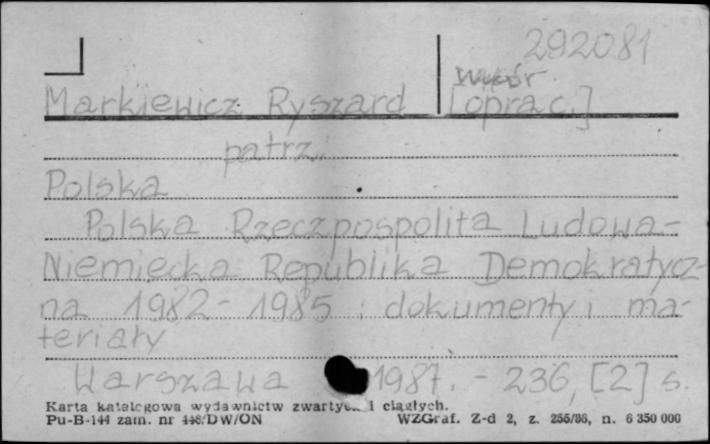 292081
Wybór
Markiewicz Ryszard [oprac.]
patrz
Polska
Polska Rzeczpospolita Ludowa-
Niemiecka Republika Demokratycz-
na 1982-1985 : dokumenty i ma-
teriały
Warszawa 1987. - 236, [2] s.
Karta katalogowa wydawnictw zwartych i ciągłych.
Pu-B-144 zam. nr 448/DW/ON WZGraf. Z-d 2, z. 256/86, n. 6 350 000